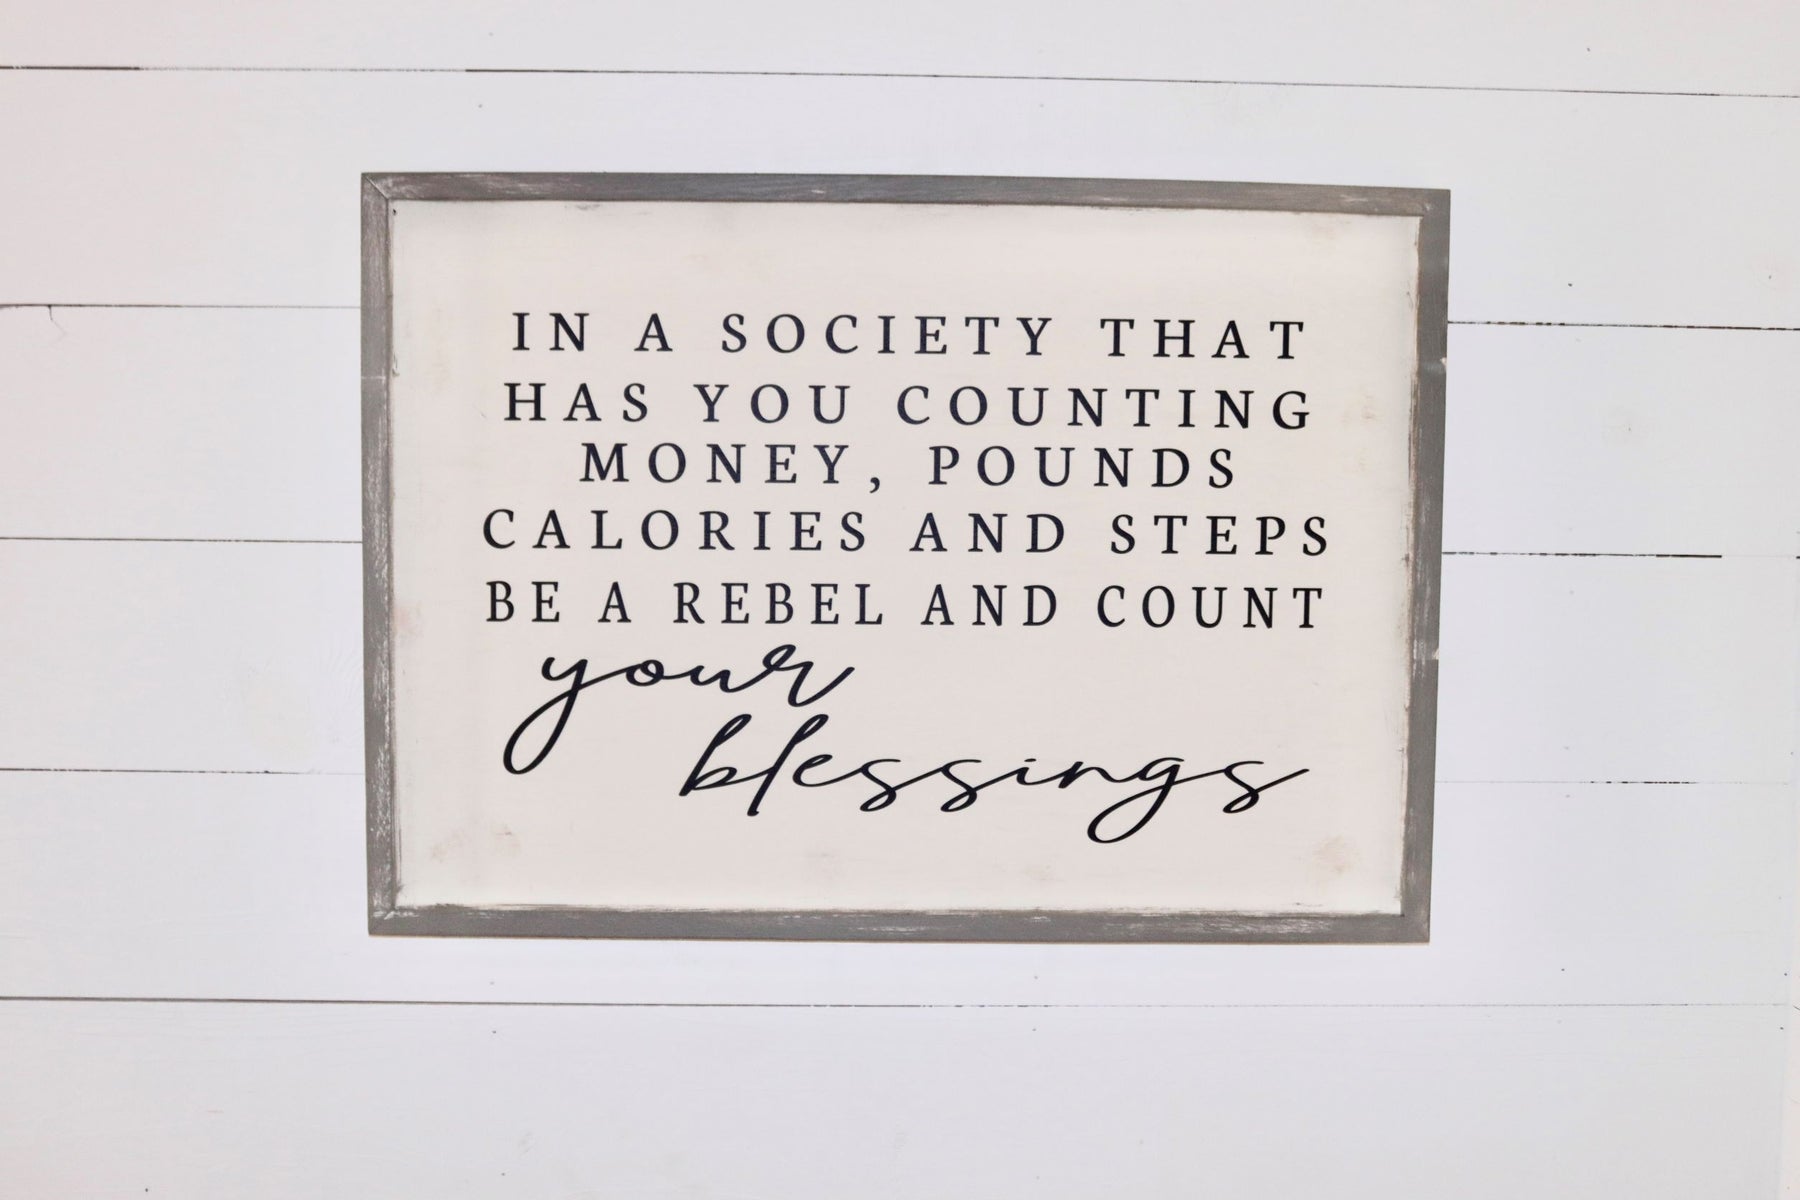 IN A SOCIETY THAT
HAS YOU COUNTING
MONEY, POUNDS
CALORIES AND STEPS
BE A REBEL AND COUNT
your
blessings